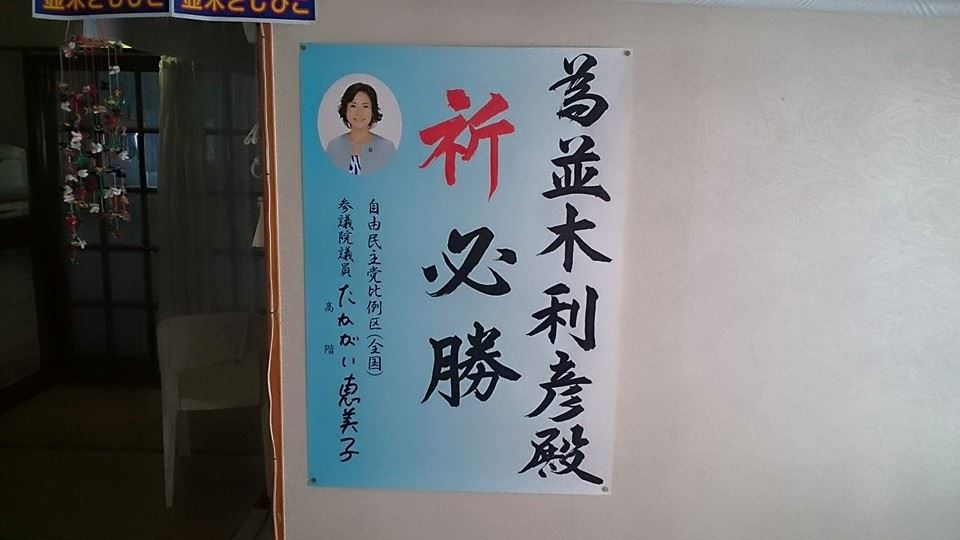 並木としひこ
並木としひこ
為並木利彦殿
祈必勝
自由民主党比例区(全国)
参議院議員たかがい恵美子
高階